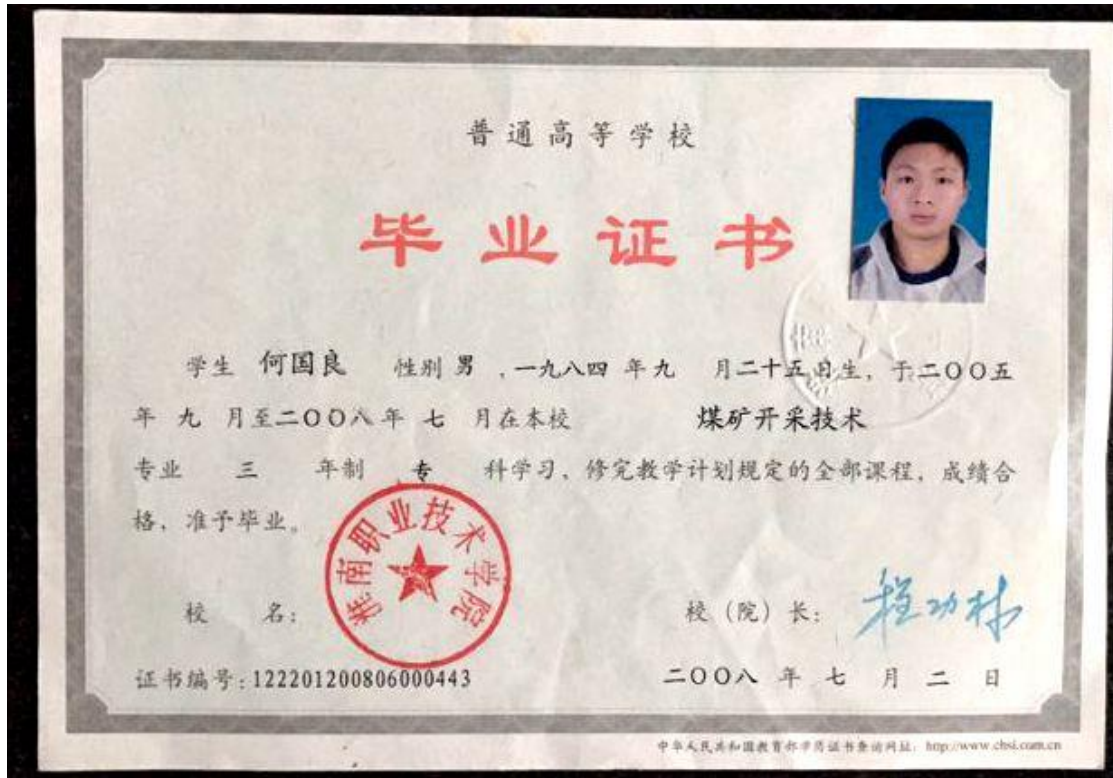 普通高等学校
毕业证书
学生 何国良 性别 男 ,一九八四 年 九 月二十五日生, 于二〇〇五
年 九 月至二〇〇八 年 七 月在本校 煤矿开采技术
专业 三 年制 专 科学习、修完教学计划规定的全部课程, 成绩合
格, 准予毕业。
淮南职业技术学院
校 名: 校 (院) 长: 程功林
证书编号:122201200806000443 二〇〇八 年 七 月 二 日
中华人民共和国教育部学历证书查询网址: http://www.chsi.com.cn